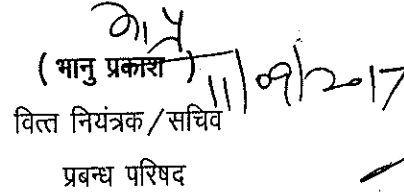 ( भानु प्रकाश )
11/09/2017
वित्त नियंत्रक/सचिव
प्रबन्ध परिषद